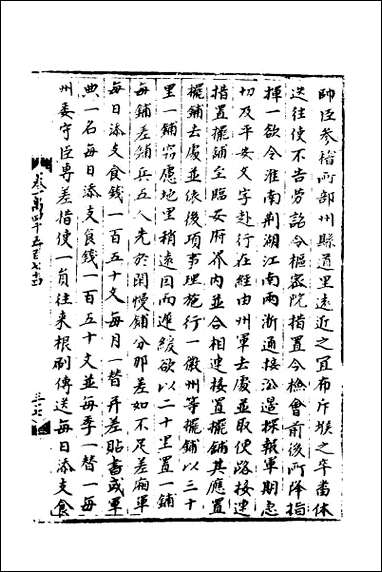 帥臣參稽所部州縣道里遠近之宜布斥堠之卒當体
送往使不告勞詔令樞宻院措置今檢會前後所降指
揮一欲令淮南荆湖江南兩浙通接沿邉探報軍期急
切及平安文字赴行在經由州軍去處並取便路接連
措置擺鋪至臨安府界內並合相連接置擺鋪其應置
擺鋪去處並依後項事理施行一徽州等擺鋪以三十
里一鋪竊慮地里稍遠因而遲緩欲以二十里置一鋪
每鋪差鋪兵五人先於閑慢鋪分那差如不足差廂軍
每日添支食錢一百五十文每月一替弄差貼書或軍
典一名每日添支食錢一百五十文並每季一替一每
州委守臣専差指使一員往来根刷傳送每日添支食
卷一萬四千五百七十